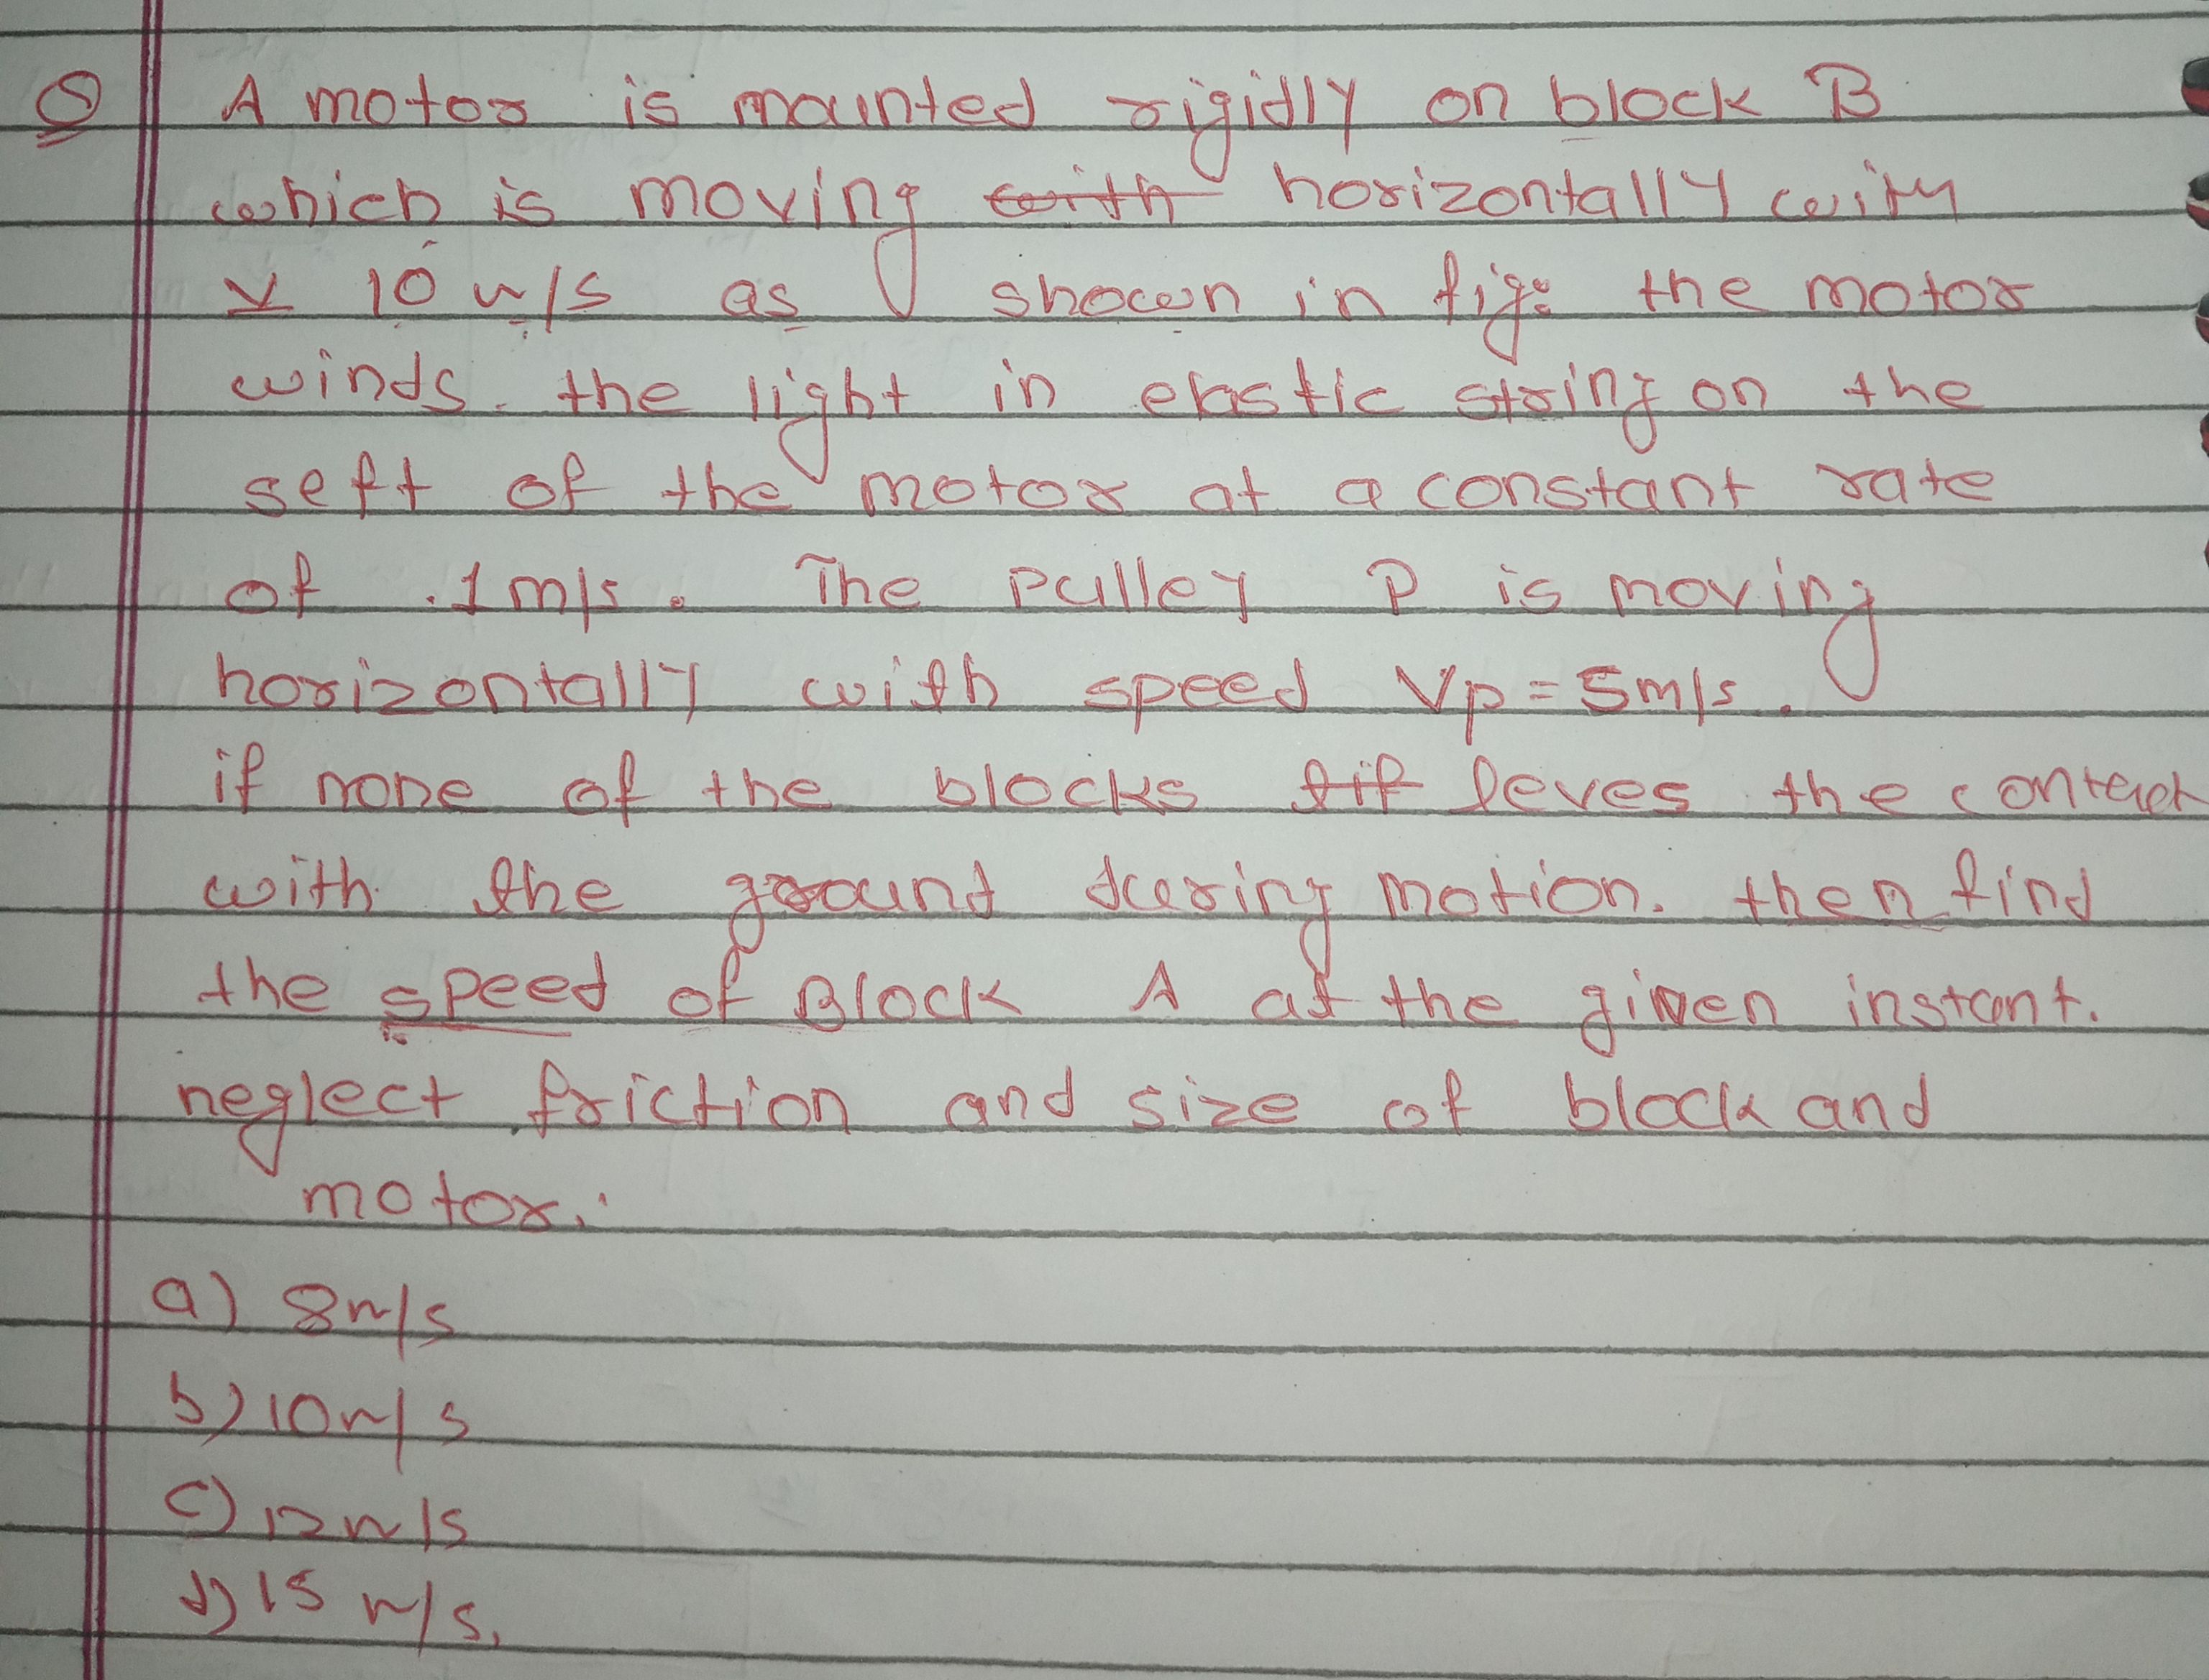 Q A motor is mounted rigidly on block B
which is moving with horizontally with
v 10 m/s as shown in fig: the motor
winds. the light in elastic string on the
seft of the motor at a constant rate
of .1m/s. The pulley P is moving
horizontally with speed Vp = 5m/s.
if none of the blocks leves the contact
with the ground during motion. then find
the speed of Block A at the given instant.
neglect friction and size of block and
motor.
a) 8m/s
b) 10m/s
c) 12m/s
d) 15 m/s.